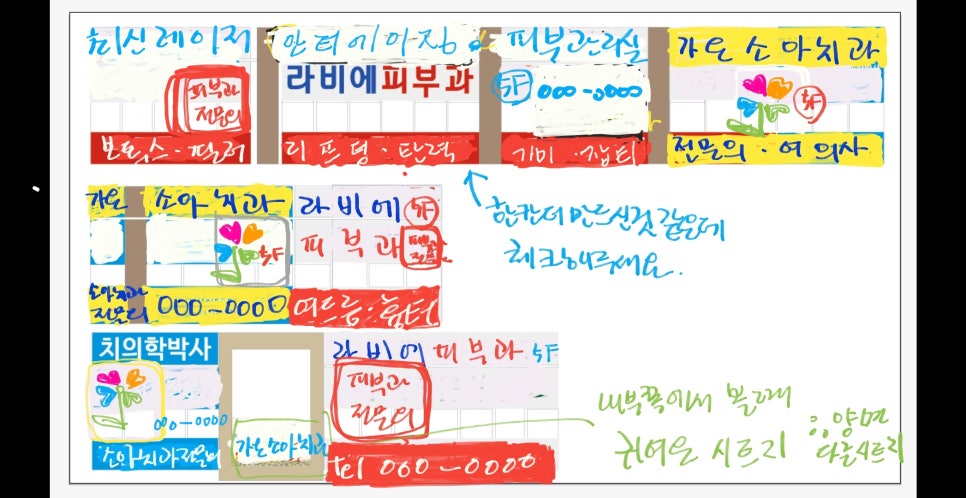 최신레이저
안티에이징
피부관리실
가온소아치과
라비에피부과
피부과
전문의
5F
000-0000
5F
보톡스·필러
리프팅·탄력
기미·잡티
전문의·여의사
가온
소아치과
라비에 5F
피부과
5F
소아치과
전문의
000-0000
여드름·흉터
한칸더 만드신것 같은데
체크해주세요.
치의학박사
라비에 피부과 5F
피부과
전문의
000-0000
가온소아치과
소아치과전문의
tel 000-0000
내부쪽에서 볼때
귀여운 시트지
양면
다른시트지